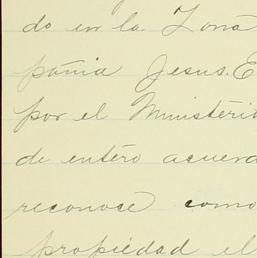 do en la Zona
pánia Jesus. E
por el Ministerio
de entéro acuerd
reconose como
propiedad el